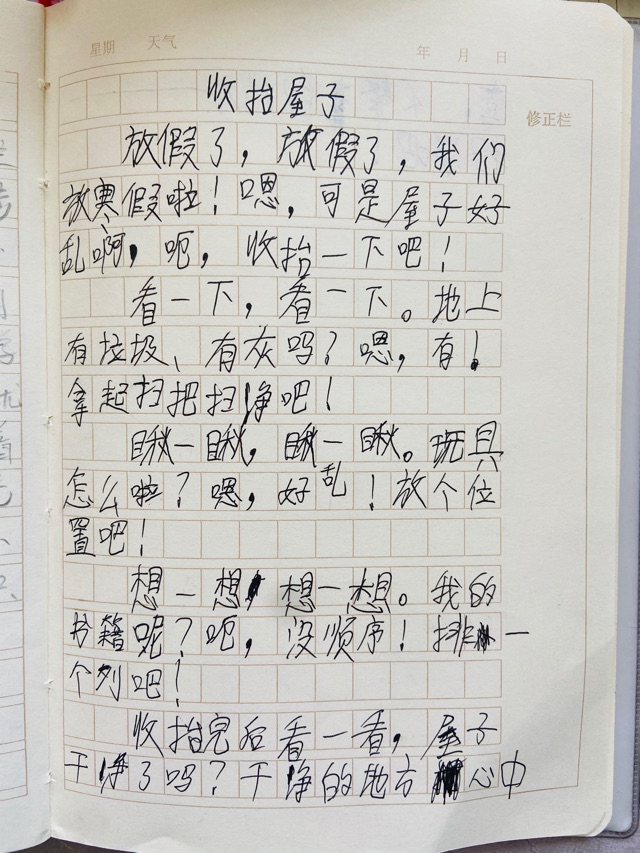 星期 天气 年 月 日
修正栏
收拾屋子
放假了，放假了，我们
放寒假啦！嗯，可是屋子好
乱啊，呃，收拾一下吧！
看一下，看一下。地上
有垃圾、有灰吗？嗯，有！
拿起扫把扫净吧！
瞅一瞅，瞅一瞅。玩具
怎么啦？嗯，好乱！放个位
置吧！
想一想，想一想。我的
书籍呢？呃，没顺序！排一
个列吧！
收拾完后看一看，屋子
干净了吗？干净的地方心中